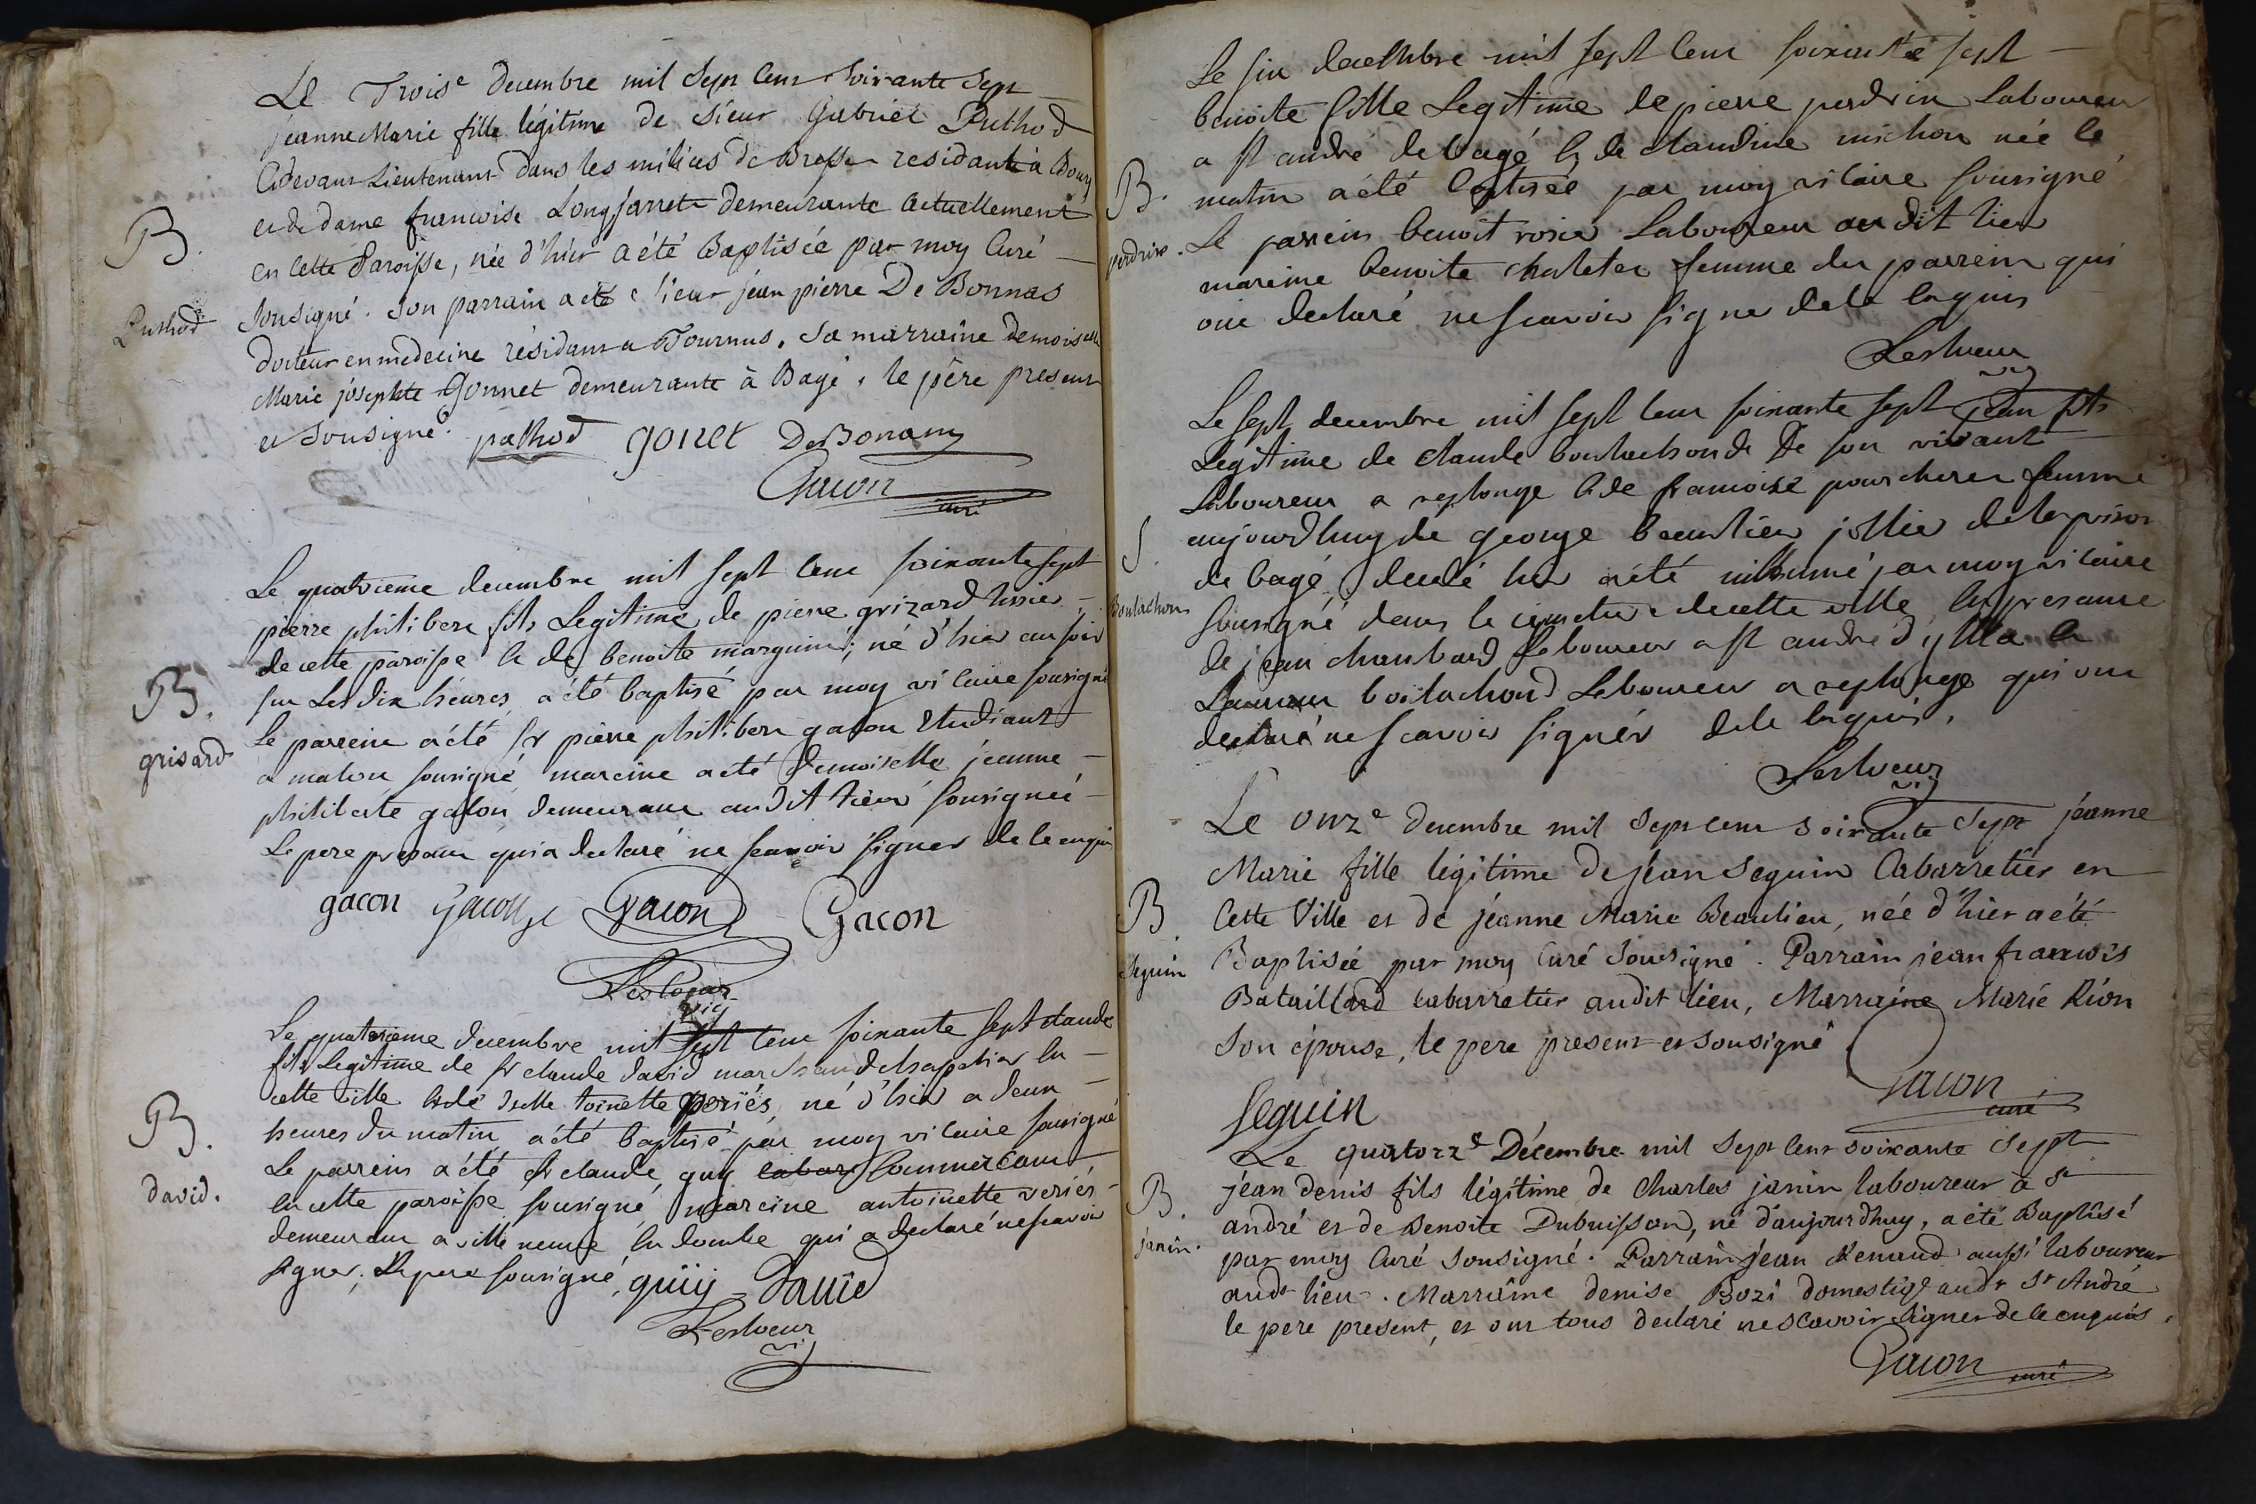 Le Troise decembre mil Sept Cent Soixante Sept
jeanne Marie fille légitime de Sieur Gabriel Puthod
Cidevant Lieutenant dans les milices de Bresse residant à Bourg
et de dame francoise Longjarret demeurante actuellement
en cette Paroisse, née d'hier a été Baptisée par moy Curé
B.
Puthod
Sousigné. Son parrain a été sieur jean pierre De Bonnas
docteur en medecine résidant a Tournus. Sa marraine demoiselle
Marie josephte Gonnet demeurante à Bagé. le père present
et Sousigné.
puthod gonet DeBonam
Gacon
curé
Le quatrieme decembre mil sept cent soixante sept
pierre philibert fils Legitime de pierre grizard
de cette paroisse et de benoite marguin, né d'hier au soir
sur Les dix heures a été baptisé par moy vicaire sousigné
B.
grisard
Le parrein a été sr pierre philibert gacon Etudiant
a macon sousigné mareine a été demoiselle jeanne
philiberte gacon demeurant au dit lieu sousignée
Le pere present qui a declaré ne scavoir signer de ce enquis
gacon gacon Gacon Gacon
Leslueur
vic
Le quatrieme decembre mil sept cent soixante sept claude
fils Legitime de sr claude david marchand chapelier en
cette ville et de dselle toinette veriés, né d'hier a deux
heures du matin a été baptisé par moy vicaire sousigné
B.
david.
Le parrein a été sr claude guy commercant
en cette paroisse sousigné mareine antoinette veriés
demeurant a ville neuve en dombe qui a declaré ne scavoir
signer, Le pere sousigné,
guiy David
Leslueur
vic
Le six decembre mil sept cent soixante sept
benoite fille Legitime de pierre perdrix Laboureur
a st andré de bagé et de claudine michon née le
matin a été baptisée par moy vicaire sousigné
B.
perdrix.
Le parrein benoit rosier Laboureur au dit lieu
mareine benoite chateter femme du parrein qui
ont declaré ne scavoir signer de ce enquis
Leslueur
vic
Le Sept decembre mil sept cent soixante sept jean fils
Legitime de claude boulachon de son vivant
Laboureur a replonge et de francoise pourcherer femme
aujourdhuy de george beaulieu jollier de la prison
de bagé, decedé hier a été inhumé par moy vicaire
S.
Boulachon
sousigné dans le cimetiere de cette ville, en presance
de jean chambard Laboureur a st andré d'
boulachond Laboureur a replonge qui ont
declaré ne scavoir signér de ce enquis.
Leslueur
vic
Le onze decembre mil Sept cent soixante Sept jeanne
Marie fille légitime de jean Seguin Cabarretier en
cette Ville et de jeanne Marie Beaulieu, née d'hier a été
B.
Seguin
Baptisée par moy Curé Sousigné. Parrain jean francois
Bataillard cabarretier audit lieu, Marraine Marie Rion
son épouse, le pere present et sousigné
Gacon
curé
Seguin
Le quatorze Décembre mil Sept Cent soixante Sept
jean denis fils légitime de Charles janin laboureur à St
B.
janin.
andré et de Benoite Dubuisson, né d'aujourdhuy, a été Baptisé
par moy Curé sousigné. Parrain jean Renaud aussi laboureur
audt lieu. Marraine denise Bozi domestiqe audt St André
le pere present, et ont tous declaré ne scavoir signer de ce enquis.
Gacon
curé